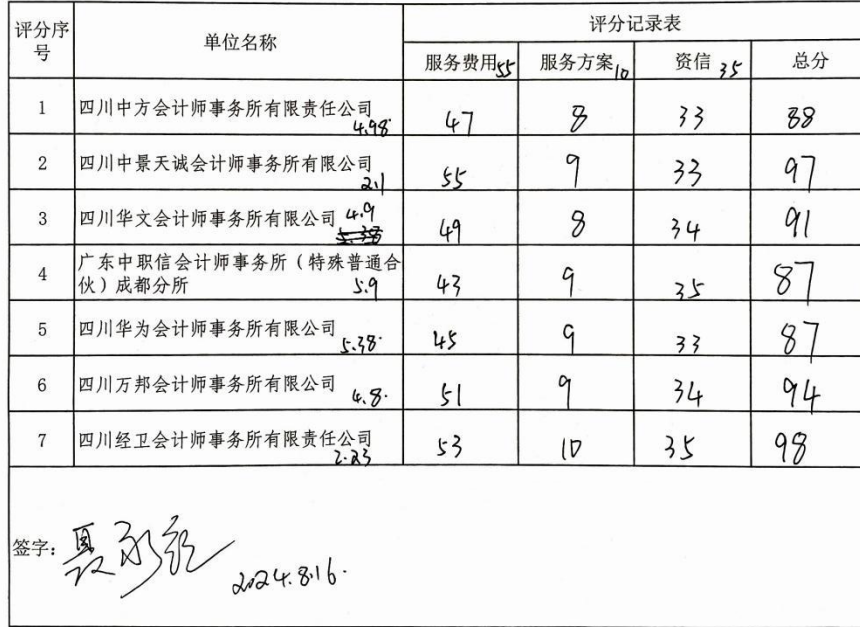 评分序号 单位名称 评分记录表
服务费用55 服务方案10 资信 35 总分
1 四川中方会计师事务所有限责任公司 4.98 47 8 33 88
2 四川中景天诚会计师事务所有限公司 2.1 55 9 33 97
3 四川华文会计师事务所有限公司 4.9 5.38 49 8 34 91
4 广东中职信会计师事务所（特殊普通合
伙）成都分所 5.9 43 9 35 87
5 四川华为会计师事务所有限公司 5.38 45 9 33 87
6 四川万邦会计师事务所有限公司 4.8 51 9 34 94
7 四川经卫会计师事务所有限责任公司 2.23 53 10 35 98
签字：
2024.8.16.